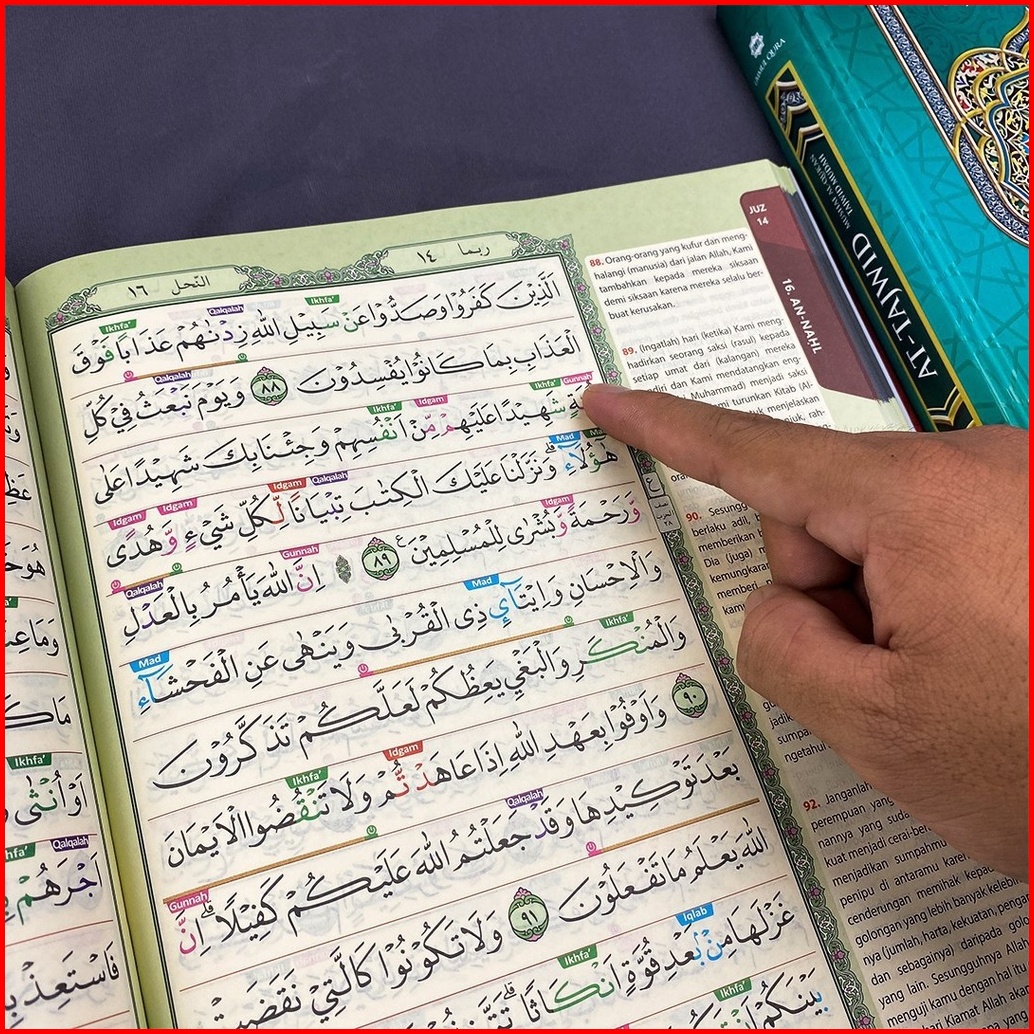 JUZ
14
16. AN-NAHL
AT-TAJWID
MUSHAF AL-QUR'AN
TAJWID MUDAH
النحل ١٦
ربما ١٤
Ikhfa' Qalqalah Ikhfa'
الَّذِيْنَ كَفَرُوْا وَصَدُّوْا عَنْ سَبِيْلِ اللّٰهِ زِدْنٰهُمْ عَذَابًا فَوْقَ
Qalqalah
الْعَذَابِ بِمَا كَانُوْا يُفْسِدُوْنَ ٨٨ وَيَوْمَ نَبْعَثُ فِيْ كُلِّ
Gunnah Ikhfa' Idgam Ikhfa'
شَهِيْدًا عَلَيْهِمْ مِّنْ اَنْفُسِهِمْ وَجِئْنَا بِكَ شَهِيْدًا عَلٰى
Mad
هٰٓؤُلَاۤءِۗ وَنَزَّلْنَا عَلَيْكَ الْكِتٰبَ تِبْيَانًا لِّكُلِّ شَيْءٍ وَّهُدًى
Qalqalah Idgam Idgam Idgam
وَّرَحْمَةً وَّبُشْرٰى لِلْمُسْلِمِيْنَ ٨٩ اِنَّ اللّٰهَ يَأْمُرُ بِالْعَدْلِ
Idgam Gunnah Qalqalah
وَالْاِحْسَانِ وَاِيْتَاۤئِ ذِى الْقُرْبٰى وَيَنْهٰى عَنِ الْفَحْشَاۤءِ
Mad Mad
وَالْمُنْكَرِ وَالْبَغْيِ يَعِظُكُمْ لَعَلَّكُمْ تَذَكَّرُوْنَ ٩٠
Ikhfa'
وَاَوْفُوْا بِعَهْدِ اللّٰهِ اِذَا عَاهَدْتُّمْ وَلَا تَنْقُضُوا الْاَيْمَانَ
Idgam Ikhfa'
بَعْدَ تَوْكِيْدِهَا وَقَدْ جَعَلْتُمُ اللّٰهَ عَلَيْكُمْ كَفِيْلًاۗ اِنَّ
Qalqalah Gunnah
اللّٰهَ يَعْلَمُ مَا تَفْعَلُوْنَ ٩١ وَلَا تَكُوْنُوْا كَالَّتِيْ نَقَضَتْ
Iqlab Ikhfa'
غَزْلَهَا مِنْۢ بَعْدِ قُوَّةٍ اَنْكَاثًاۗ
Ikhfa'
بَيْنَكُمْ
88. Orang-orang yang kufur dan meng-
halangi (manusia) dari jalan Allah, Kami
tambahkan kepada mereka siksaan
demi siksaan karena mereka selalu ber-
buat kerusakan.
89. (Ingatlah) hari (ketika) Kami meng-
hadirkan seorang saksi (rasul) kepada
setiap umat dari (kalangan) mereka
diri dan Kami mendatangkan eng-
Muhammad) menjadi saksi
mi turunkan Kitab (Al-
tuk menjelaskan
90. Sesungg
berlaku adil,
memberikan
Dia (juga)
kemungkara
memberi
kamu
jadik
sumpa
ngetahui
92. Janganlah
perempuan yang
nannya yang suda
kuat menjadi cerai-ber
menjadikan sumpahmu
penipu di antaramu kare
cenderungan memihak kepa
golongan yang lebih banyak kelebih
nya (jumlah, harta, kekuatan, penga
dan sebagainya) daripada golo
yang lain. Sesungguhnya Allah
menguji kamu dengan hal itu
Kiamat Allah akan
Ikhfa'
اَوْ اُنْثٰى
Qalqalah
اَجْرَهُمْ
فَاسْتَعِذْ